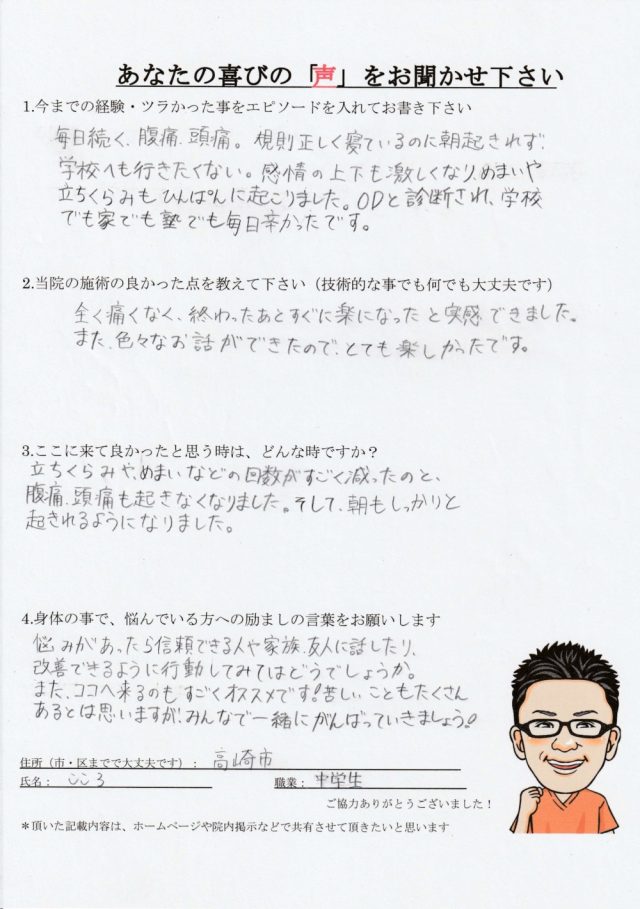 あなたの喜びの「声」をお聞かせ下さい
1.今までの経験・ツラかった事をエピソードを入れてお書き下さい
毎日続く、腹痛、頭痛。規則正しく寝ているのに朝起きれず、
学校へも行きたくない。感情の上下も激しくなり、めまいや
立ちくらみもひんぱんに起こりました。ODと診断され、学校
でも家でも塾でも毎日辛かったです。
2.当院の施術の良かった点を教えて下さい（技術的な事でも何でも大丈夫です）
全く痛くなく、終わったあとすぐに楽になったと実感できました。
また、色々なお話ができたので、とても楽しかったです。
3.ここに来て良かったと思う時は、どんな時ですか？
立ちくらみや、めまいなどの回数がすごく減ったのと、
腹痛、頭痛も起きなくなりました。そして、朝もしっかりと
起きれるようになりました。
4.身体の事で、悩んでいる方への励ましの言葉をお願いします
悩みがあったら信頼できる人や家族、友人に話したり、
改善できるように行動してみてはどうでしょうか。
また、ココへ来るのもすごくオススメです！苦しいこともたくさん
あるとは思いますが、みんなで一緒にがんばっていきましょう！
住所（市・区までで大丈夫です）： 高崎市
氏名： こころ 職業： 中学生
ご協力ありがとうございました！
＊頂いた記載内容は、ホームページや院内掲示などで共有させて頂きたいと思います